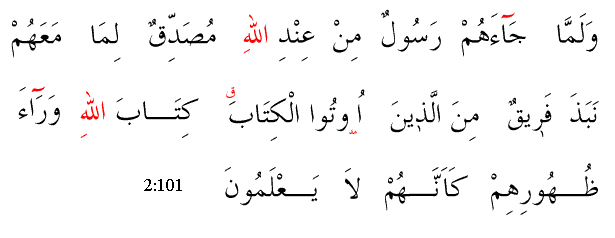 وَلَمَّا جَآءَهُمْ رَسُولٌ مِنْ عِنْدِ اللهِ مُصَدِّقٌ لِمَا مَعَهُمْ
نَبَذَ فَرِيقٌ مِنَ الَّذِينَ اُو۫تُوا الْكِتَابَۗ كِتَـــابَ اللهِ وَرَآءَ
ظُـــهُورِهِمْ كَاَنَّـــهُمْ لاَ يَـــعْلَمُونَ 2:101